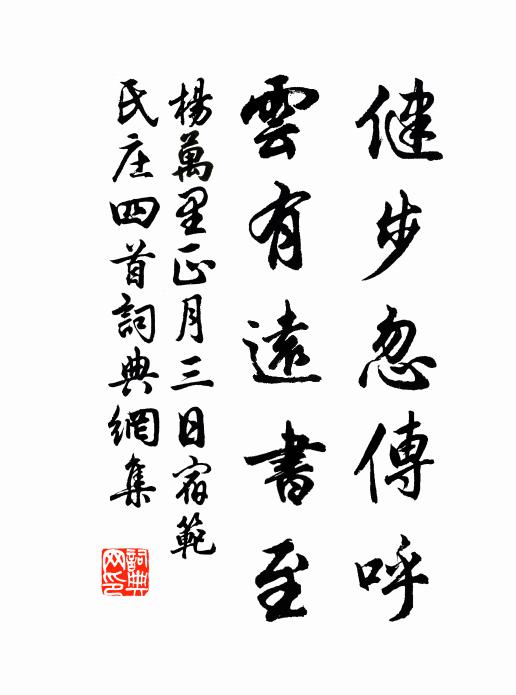 健步忽傳呼
雲有遠書至
楊萬里正月三日宿範
氏庄四首詞典網集
詞典
网印